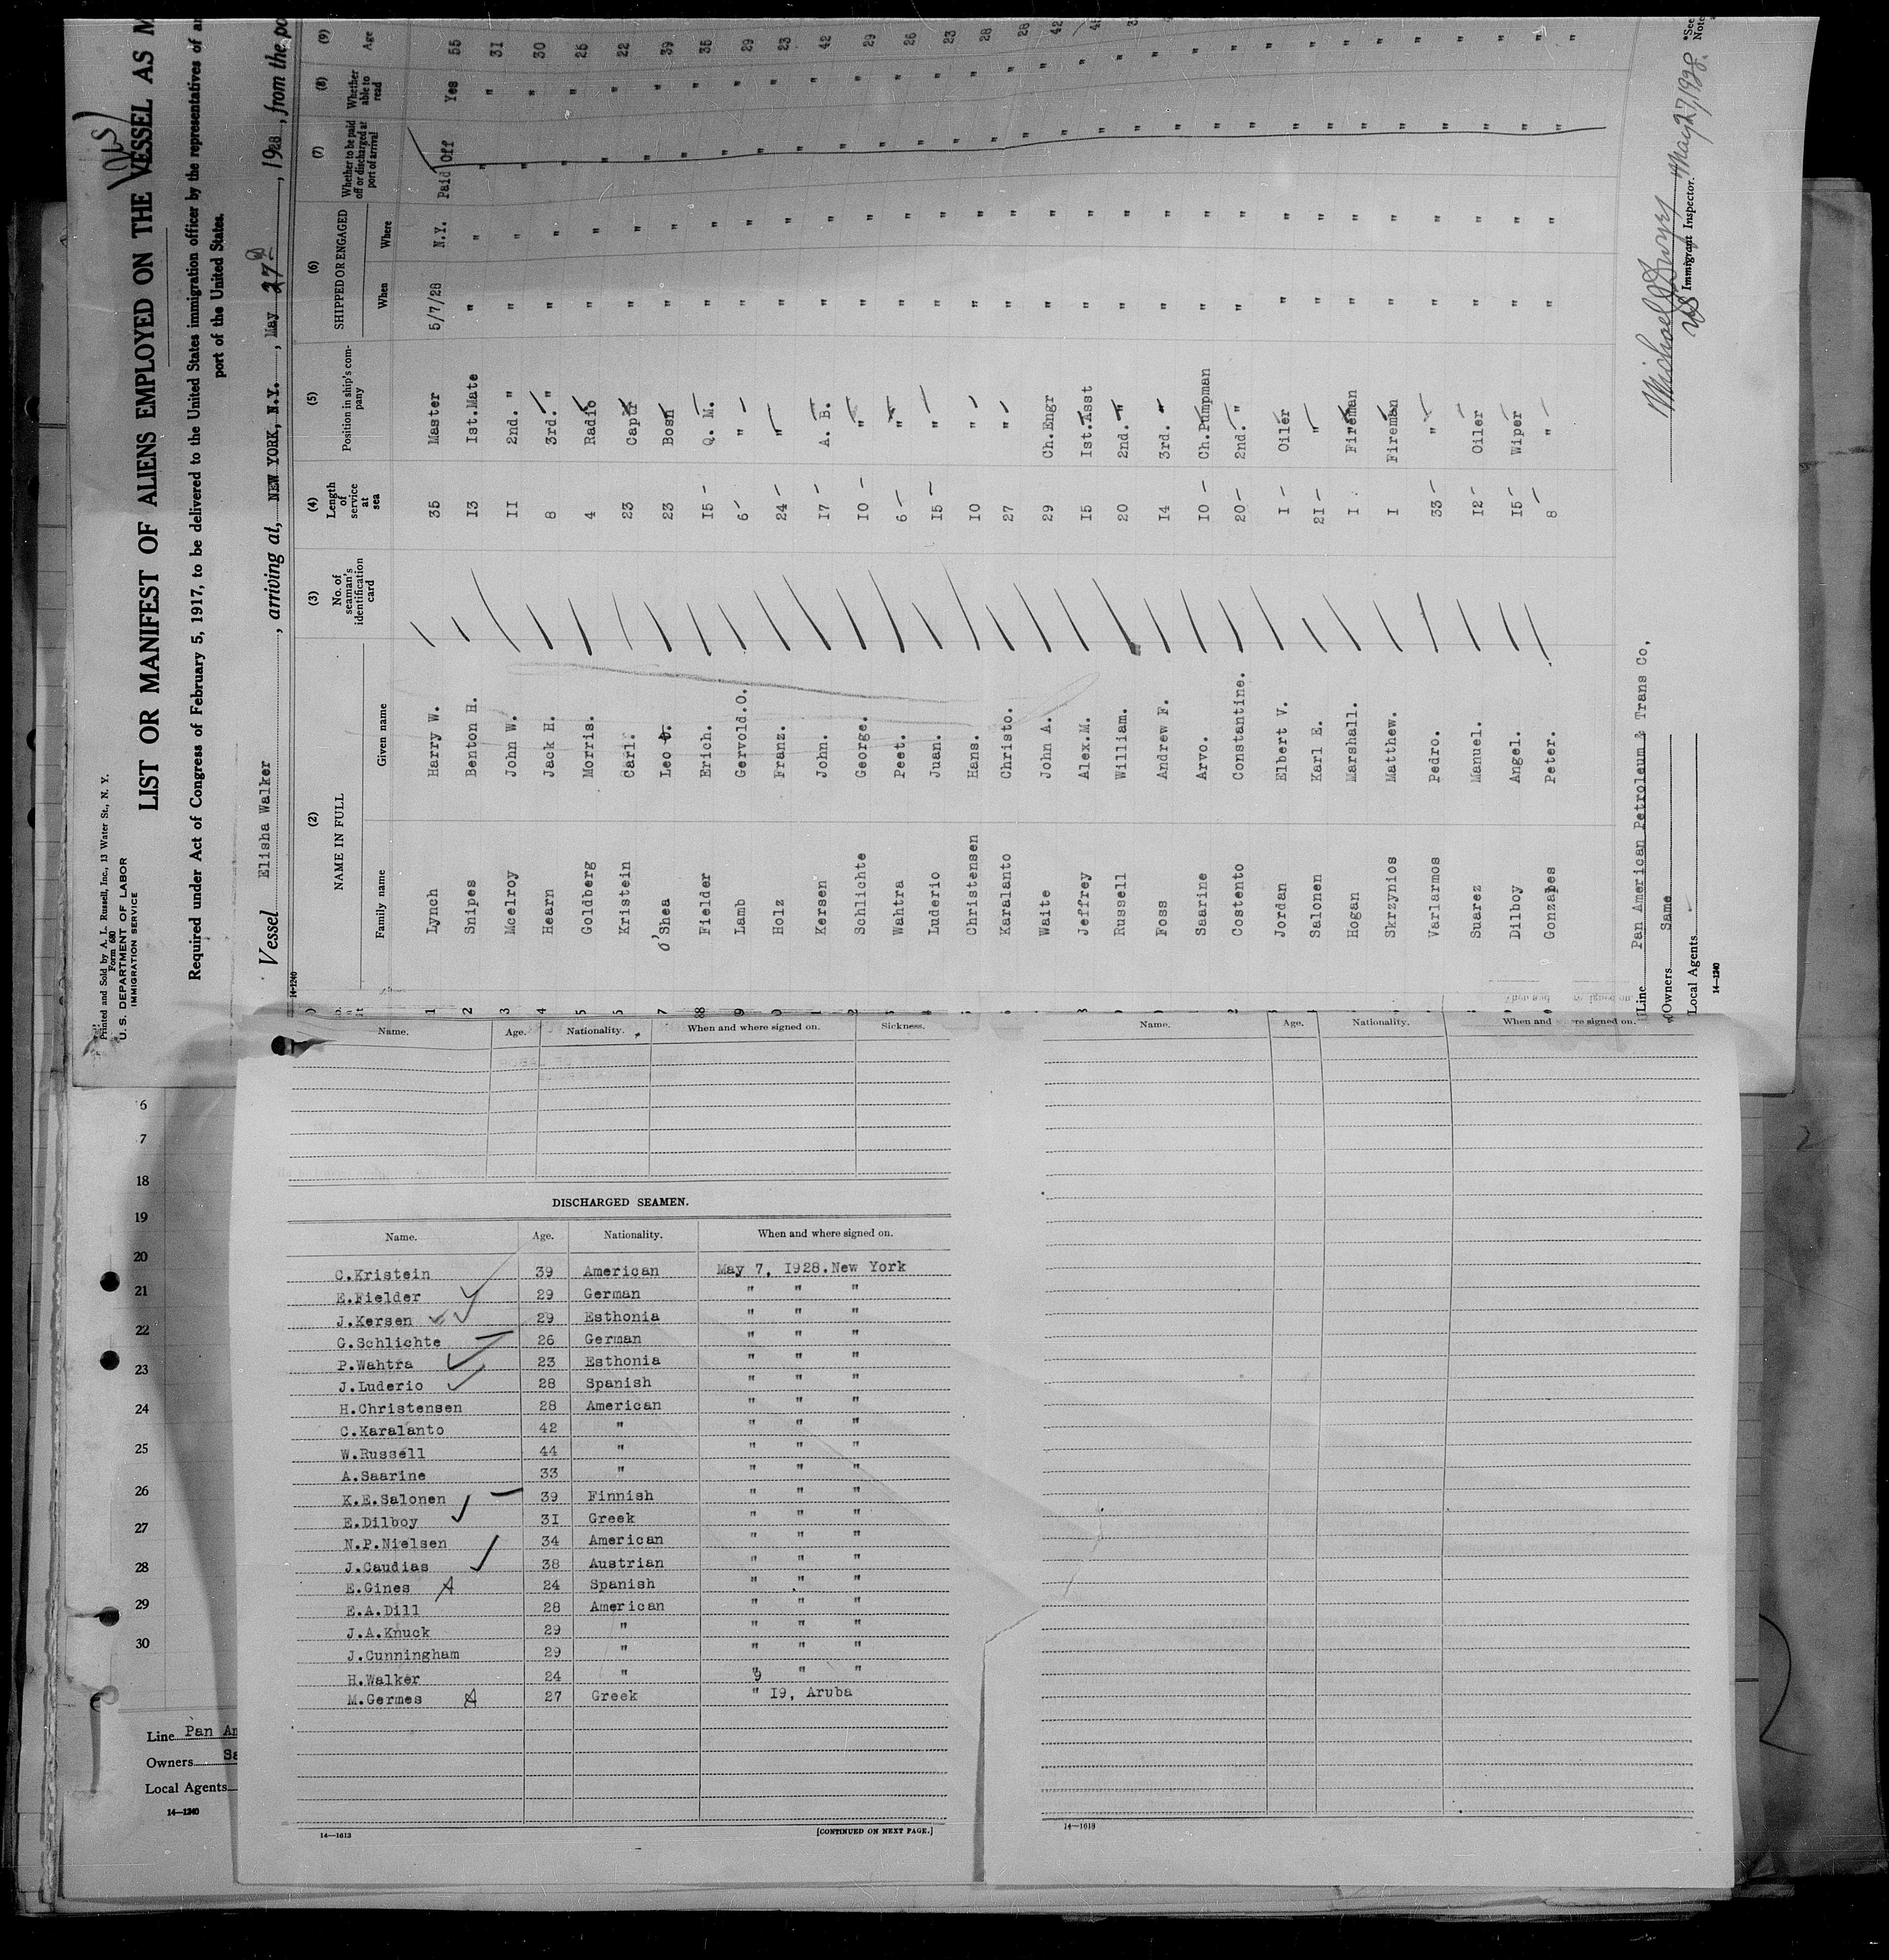 Printed and Sold by A. L. Russell, Inc., 13 Water St., N. Y.
Form 680
U. S. DEPARTMENT OF LABOR
IMMIGRATION SERVICE
LIST OR MANIFEST OF ALIENS EMPLOYED ON THE VESSEL AS M
Required under Act of Congress of February 5, 1917, to be delivered to the United States immigration officer by the representatives of
port of the United States.
Vessel Elisha Walker, arriving at, NEW YORK, N.Y., May 27, 1928, from the po
14-1240
(2) (3) (4) (5) (6) (7) (8) (9)
NAME IN FULL No. of seaman's identification card Length of service at sea Position in ship's company SHIPPED OR ENGAGED Whether to be paid off or discharged at port of arrival Whether able to read Age
Family name Given name When Where
1 Lynch Harry W. 35 Master 5/7/28 N.Y. Paid Off Yes 55
2 Snipes Benton H. I3 Ist.Mate " " " " 31
3 Mcelroy John W. II 2nd. " " " " " 30
4 Hearn Jack H. 8 3rd. " " " " " 25
5 Goldberg Morris. 4 Radio " " " " 22
Kristein Carl. 23 " " " " 39
7 O'Shea Leo 23 Bosn " " " " 35
Fielder Erich. I5 Q. M. " " " " 29
9 Lamb Gervold.O. 6 " " " " " 23
Holz Franz. 24 " " " " " 42
1 Kersen John. I7 A. B. " " " " 29
2 Schlichte George. I0 " " " " " 26
Wahtra Peet. 6 " " " " " 23
Luderio Juan. I5 " " " " " 28
Christensen Hans. I0 " " " " " 28
Karalanto Christo. 27 " " " " " 42
Waite John A. 29 Ch.Engr " " " "
Jeffrey Alex.M. I5 Ist.Asst " " " "
Russell William. 20 2nd. " " " " "
Foss Andrew F. I4 3rd. " " " " "
Saarine Arvo. I0 Ch.Pumpman " " " "
Costento Constantine. 20 2nd. " " " " "
Jordan Elbert V. I Oiler " " " "
Salonen Karl E. 2I " " " " "
Hogan Marshall. I Fireman " " " "
Skrzynios Matthew. I Fireman " " " "
Varlarmos Pedro. 33 " " " " "
Suarez Manuel. I2 Oiler " " " "
Dilboy Angel. I5 Wiper " " " "
Gonzales Peter. 8 " " " " "
Line Pan American Petroleum & Trans Co.
Owners Same
Local Agents
14-1240
Immigrant Inspector. May 27, 1928
*See
Note
Name. Age. Nationality. When and where signed on. Sickness.
Name. Age. Nationality. When and where signed on.
DISCHARGED SEAMEN.
Name. Age. Nationality. When and where signed on.
C.Kristein 39 American May 7, I928.New York
E.Fielder 29 German " " "
J.Kersen 29 Esthonia " " "
G.Schlichte 26 German " " "
P.Wahtra 23 Esthonia " " "
J.Luderio 28 Spanish " " "
H.Christensen 28 American " " "
C.Karalanto 42 " " " "
W.Russell 44 " " " "
A.Saarine 33 " " " "
K.E.Salonen 39 Finnish " " "
E.Dilboy 3I Greek " " "
N.P.Nielsen 34 American " " "
J.Caudias 38 Austrian " " "
E.Gines 24 Spanish " " "
E.A.Dill 28 American " " "
J.A.Knuck 29 " " " "
J.Cunningham 29 " " " "
H.Walker 24 " 9 " "
M.Germes 27 Greek " I9, Aruba
14—1613 [CONTINUED ON NEXT PAGE.]
14—1613
6
7
18
19
20
21
22
23
24
25
26
27
28
29
30
Line Pan Am
Owners Sa
Local Agents
14—1240